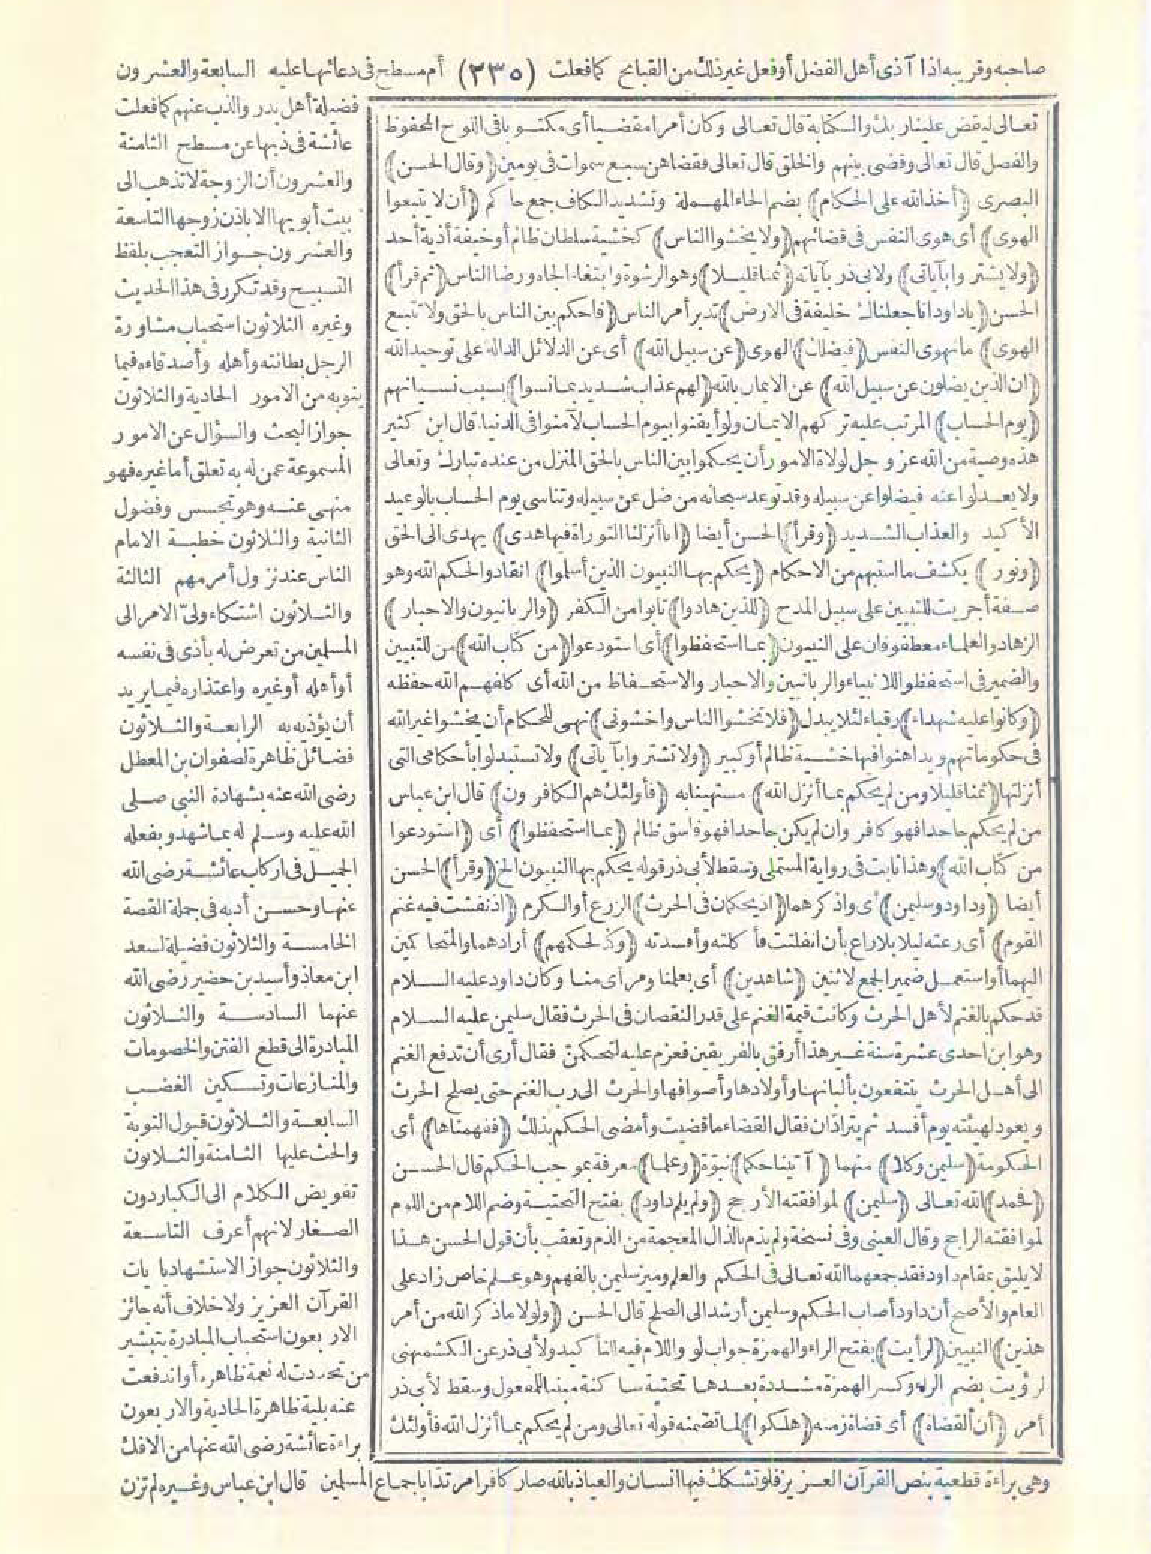 صاحبه وقريبه اذا آذى أهل الفضل أو فعل غير ذلك من القبائح كما فعلت (٢٣٥) أم مسطح فى دعائها عليه السابعة والعشرون
فضيلة أهل بدر والذب عنهم كما فعلت
عائشة فى ذبها عن مسطح الثامنة
والعشرون أن الزوجة لا تذهب الى
بيت أبويها الا باذن زوجها التاسعة
والعشرون جواز التعجب بلفظ
التسبيح وقد تكرر فى هذا الحديث
وغيره الثلاثون استحباب مشاورة
الرجل بطانته وأهله وأصدقاءه فيما
ينوبه من الامور الحادية والثلاثون
جواز البحث والسؤال عن الامور
المسموعة عمن له به تعلق أما غيره فهو
منهى عنه وهو تجسس وفضول
الثانية والثلاثون خطبة الامام
الناس عند نزول أمر مهم الثالثة
والثلاثون اشتكاء ولى الامر الى
المسلمين من تعرض له بأذى فى نفسه
أو أهله أو غيره واعتذاره فيما يريد
أن يؤذيه به الرابعة والثلاثون
فضائل ظاهرة لصفوان بن المعطل
رضى الله عنه بشهادة النبى صلى
الله عليه وسلم له بما شهد وبفعله
الجميل فى اركاب عائشة رضى الله
عنها وحسن أدبه فى جملة القصة
الخامسة والثلاثون فضيلة لسعد
ابن معاذ وأسيد بن حضير رضى الله
عنهما السادسة والثلاثون
المبادرة الى قطع الفتن والخصومات
والمنازعات وتسكين الغضب
السابعة والثلاثون قبول التوبة
والحث عليها الثامنة والثلاثون
تفويض الكلام الى الكبار دون
الصغار لانهم أعرف التاسعة
والثلاثون جواز الاستشهاد بآيات
القرآن العزيز ولا خلاف أنه جائز
الاربعون استحباب المبادرة بتبشير
من تجددت له نعمة ظاهرة أو اندفعت
عنه بلية ظاهرة الحادية والاربعون
براءة عائشة رضى الله عنها من الافك
تعالى ليقض علينا ربك والكتابة قال تعالى وكان أمرا مقضيا أى مكتوبا فى اللوح المحفوظ
والفصل قال تعالى وقضى بينهم والخلق قال تعالى فقضاهن سبع سموات فى يومين (وقال الحسن)
البصرى (أخذ الله على الحكام) بضم الحاء المهملة وتشديد الكاف جمع حاكم (أن لا يتبعوا
الهوى) أى هوى النفس فى قضائهم (ولا يخشوا الناس) كخشية سلطان ظالم أو خيفة أذية أحد
(ولا يشتروا بآياتى) ولابى ذر بآياته (ثمنا قليلا) وهو الرشوة وابتغاء الجاه ورضا الناس (ثم قرأ)
الحسن (ياداود انا جعلناك خليفة فى الارض) تدبر أمر الناس (فاحكم بين الناس بالحق ولا تتبع
الهوى) ما تهوى النفس (فيضلك) الهوى (عن سبيل الله) أى عن الدلائل الدالة على توحيد الله
(ان الذين يضلون عن سبيل الله) عن الايمان بالله (لهم عذاب شديد بما نسوا) بسبب نسيانهم
(يوم الحساب) المرتب عليه تركهم الايمان ولو أيقنوا بيوم الحساب لآمنوا فى الدنيا. قال ابن كثير
هذه وصية من الله عز وجل لولاة الامور أن يحكموا بين الناس بالحق المنزل من عنده تبارك وتعالى
ولا يعدلوا عنه فيضلوا عن سبيله وقد توعد سبحانه من ضل عن سبيله وتناسى يوم الحساب بالوعيد
الأكيد والعذاب الشديد (وقرأ) الحسن أيضا (انا أنزلنا التوراة فيها هدى) يهدى الى الحق
(ونور) يكشف ما استبهم من الاحكام (يحكم بها النبيون الذين أسلموا) انقادوا لحكم الله وهو
صفة أجريت للنبيين على سبيل المدح (للذين هادوا) تابوا من الكفر (والربانيون والاحبار)
الزهاد والعلماء معطوفان على النبيون (بما استحفظوا) أى استودعوا (من كتاب الله) من للتبيين
والضمير فى استحفظوا للانبياء والربانيين والاحبار والاستحفاظ من الله أى كلفهم الله حفظه
(وكانوا عليه شهداء) رقباء لئلا يبدل (فلا تخشوا الناس واخشونى) نهى للحكام أن يخشوا غير الله
فى حكوماتهم ويداهنوا فيها خشية ظالم أو كبير (ولا تشتروا بآياتى) ولا تستبدلوا بأحكامى التى
أنزلتها (ثمنا قليلا ومن لم يحكم بما أنزل الله) مستهينا به (فأولئك هم الكافرون) قال ابن عباس
من لم يحكم جاحدا فهو كافر وان لم يكن جاحدا فهو فاسق ظالم (بما استحفظوا) أى (استودعوا
من كتاب الله) وهذا ثابت فى رواية المستملى وسقط لأبى ذر قوله يحكم بها النبيون الخ (وقرأ) الحسن
أيضا (وداود وسليمن) أى واذكرهما (اذ يحكمان فى الحرث) الزرع أو الكرم (اذ نفشت فيه غنم
القوم) أى رعته ليلا بلا راع بأن انفلتت فأكلته وأفسدته (وكنا لحكمهم) أرادهما والمتحاكمين
اليهما أو استعمل ضمير الجمع لاثنين (شاهدين) أى بعلمنا ومرأى منا وكان داود عليه السلام
قد حكم بالغنم لأهل الحرث وكانت قيمة الغنم على قدر النقصان فى الحرث فقال سليمن عليه السلام
وهو ابن احدى عشرة سنة غير هذا أرفق بالفريقين فعزم عليه لتحكمن فقال أرى أن تدفع الغنم
الى أهل الحرث ينتفعون بألبانها وأولادها وأصوافها والحرث الى رب الغنم حتى يصلح الحرث
ويعود لهيئته يوم أفسد ثم يترادان فقال القضاء ما قضيت وأمضى الحكم بذلك (ففهمناها) أى
الحكومة (سليمن وكلا) منهما (آتينا حكما) نبوة (وعلما) معرفة بموجب الحكم قال الحسن
(فحمد) الله تعالى (سليمن) لموافقته الأرجح (ولم يلم داود) بفتح التحتية وضم اللام من اللوم
لموافقته الراجح وقال العينى وفى نسخة ولم يذم بالذال المعجمة من الذم وتعقب بأن قول الحسن هذا
لا يليق بمقام داود فقد جمعهما الله تعالى فى الحكم والعلم وميز سليمن بالفهم وهو علم خاص زاد على
العام والأصح أن داود أصاب الحكم وسليمن أرشد الى الصلح قال الحسن (ولولا ما ذكر الله من أمر
هذين) النبيين (لرأيت) بفتح الراء والهمزة جواب لو واللام فيه للتأكيد ولأبى ذر عن الكشميهنى
لرؤيت بضم الراء وكسر الهمزة مشددة بعدها تحتية ساكنة مبنيا للمفعول وسقط لأبى ذر
أمر (أن القضاة) أى قضاة زمنه (هلكوا) لما تضمنه قوله تعالى ومن لم يحكم بما أنزل الله فأولئك
وهى براءة قطعية بنص القرآن العزيز فلو تشكك فيها انسان والعياذ بالله صار كافرا مرتدا باجماع المسلمين قال ابن عباس وغيره لم تزن